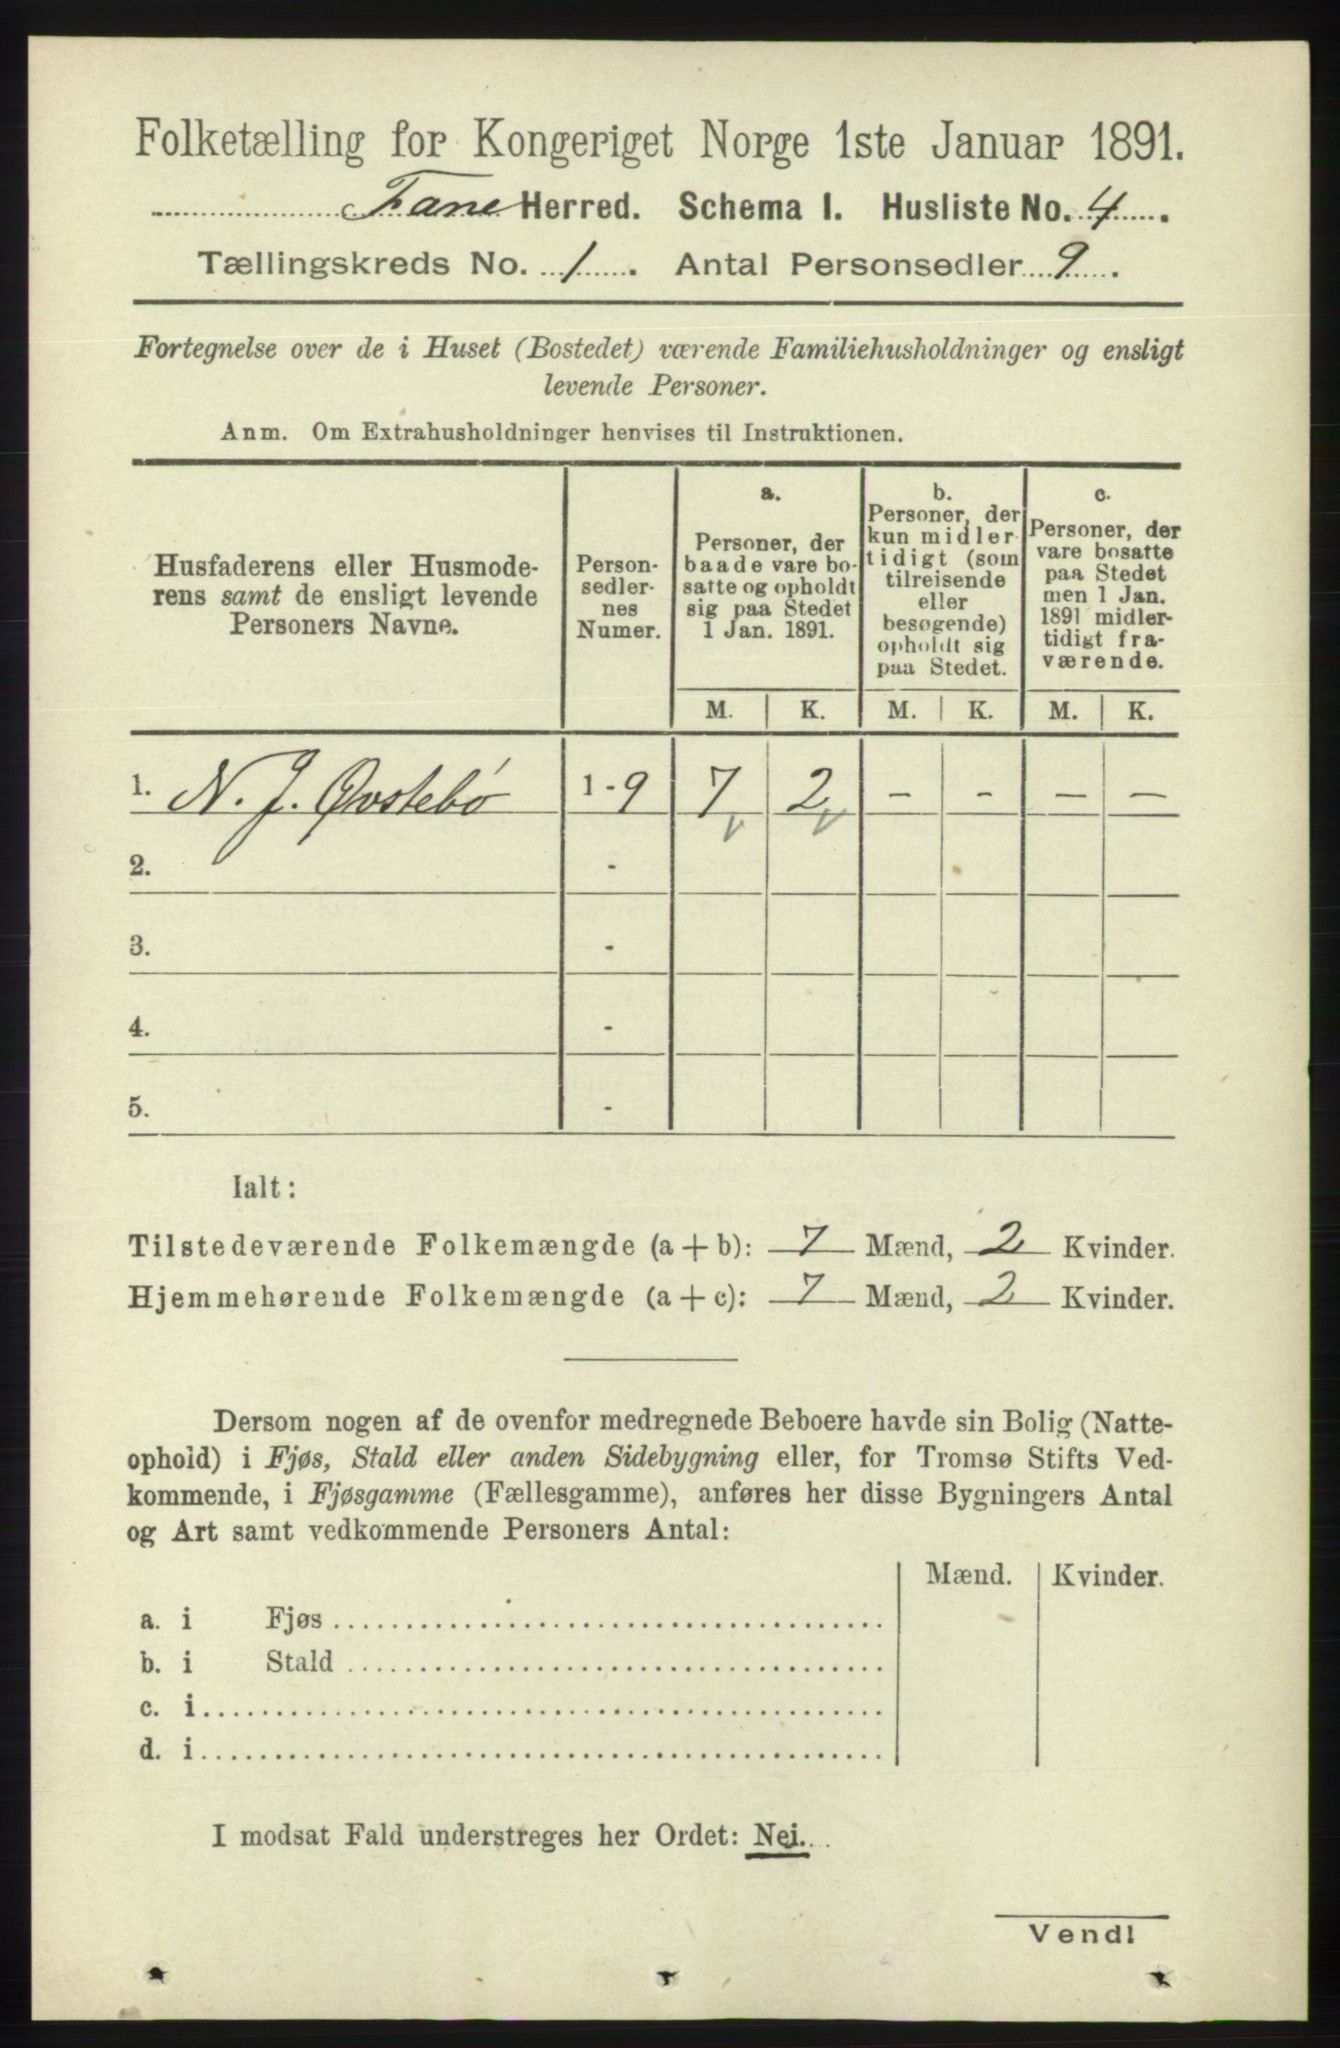 Folketælling for Kongeriget Norge 1ste Januar 1891.
Fane Herred. Schema I. Husliste No. 4.
Tællingskreds No. 1. Antal Personsedler 9.
Fortegnelse over de i Huset (Bostedet) værende Familiehusholdninger og ensligt
levende Personer.
Anm. Om Extrahusholdninger henvises til Instruktionen.
Husfaderens eller Husmode-
rens samt de ensligt levende
Personers Navne.
Person-
sedler-
nes
Numer.
a.
Personer, der
baade vare bo-
satte og opholdt
sig paa Stedet
1 Jan. 1891.
b.
Personer, der
kun midler-
tidigt (som
tilreisende
eller
besøgende)
opholdt sig
paa Stedet.
c.
Personer, der
vare bosatte
paa Stedet
men 1 Jan.
1891 midler-
tidigt fra-
værende.
M. K. M. K. M. K.
1. N. J. Øvstebø 1-9 7 2 - - - -
2. -
3. -
4. -
5. -
Ialt:
Tilstedeværende Folkemængde (a + b): 7 Mænd, 2 Kvinder.
Hjemmehørende Folkemængde (a + c): 7 Mænd, 2 Kvinder.
Dersom nogen af de ovenfor medregnede Beboere havde sin Bolig (Natte-
ophold) i Fjøs, Stald eller anden Sidebygning eller, for Tromsø Stifts Ved-
kommende, i Fjøsgamme (Fællesgamme), anføres her disse Bygningers Antal
og Art samt vedkommende Personers Antal:
Mænd. Kvinder.
a. i Fjøs
b. i Stald
c. i
d. i
I modsat Fald understreges her Ordet: Nei.
Vend!